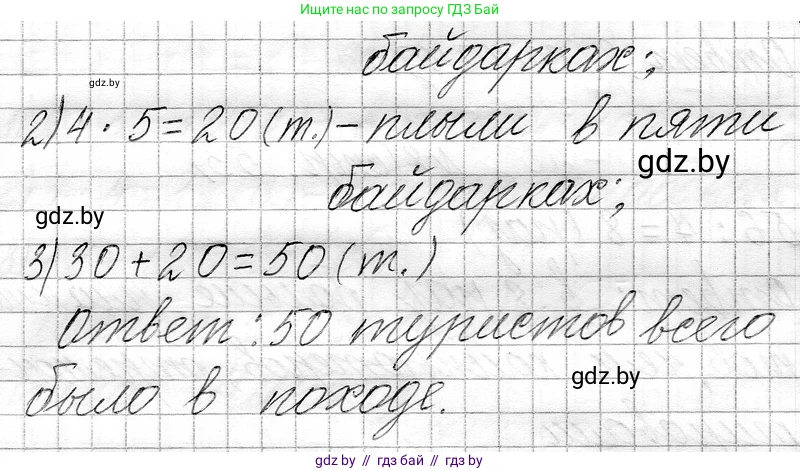 Ищите нас по запросу ГДЗ Бай
байдарках;
gdz.by
2) 4 · 5 = 20 (т.) – плыли в пяти
gdz.by
байдарках;
gdz.by
3) 30 + 20 = 50 (т.)
Ответ: 50 туристов всего
gdz.by
было в походе.
gdz.by // гдз бай // gdz by